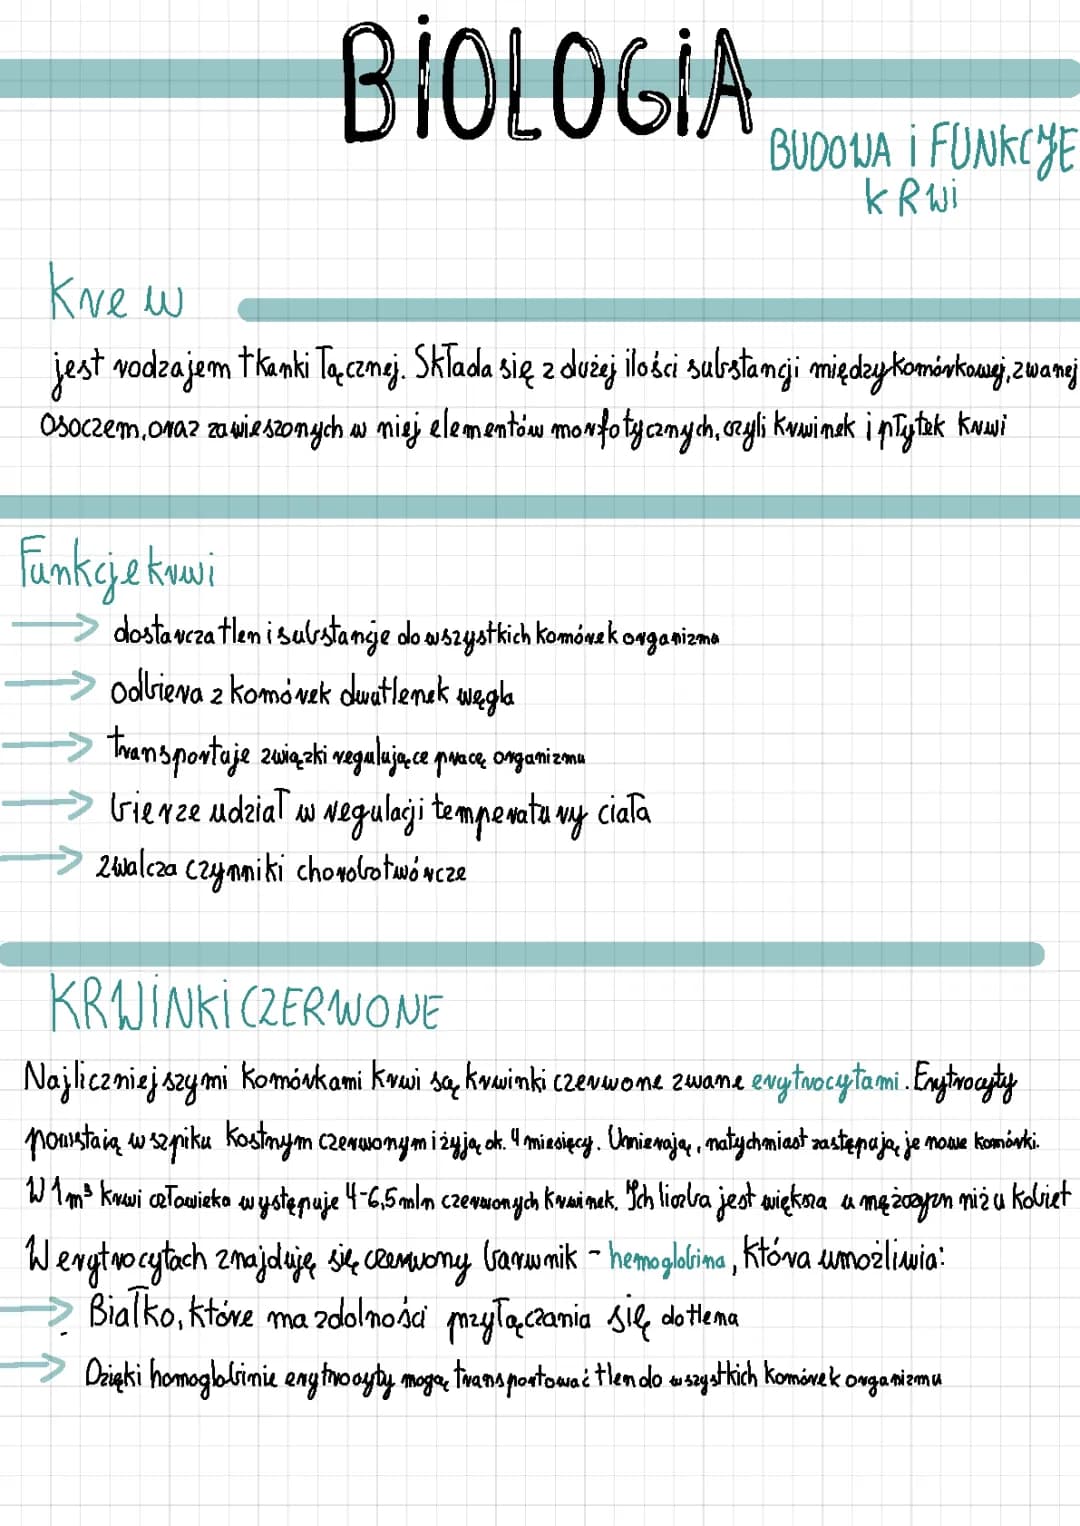 BiOLOGiA
BUDOWA i FUNKCJE
kRWi
Krew
jest rodzajem tkanki łącznej. Składa się z dużej ilości substancji międzykomórkowej, zwanej
osoczem, oraz zawieszonych w niej elementów morfotycznych, czyli krwinek i płytek krwi
Funkcje krwi
→ dostarcza tlen i substancje do wszystkich komórek organizma
→ odbiera z komórek dwutlenek węgla
→ transportuje związki regulujące pracę organizmu
→ bierze udział w regulacji temperatury ciała
→ zwalcza czynniki chorobotwórcze
KRWiNKi CZERWONE
Najliczniejszymi komórkami krwi są krwinki czerwone zwane erytrocytami. Erytrocyty
powstają w szpiku kostnym czerwonym i żyją ok. 4 miesięcy. Umierają, natychmiast zastępują je nowe komórki.
W 1m³ krwi człowieka występuje 4-6,5 mln czerwonych krwinek. Ich liczba jest większa u mężczyzn niż u kobiet
W erytrocytach znajduję się czerwony barwnik - hemoglobina, która umożliwia:
→ Białko, które ma zdolności przyłączania się do tlena
→ Dzięki homoglobinie erytrocyty mogą transportować tlen do wszystkich komórek organizmu